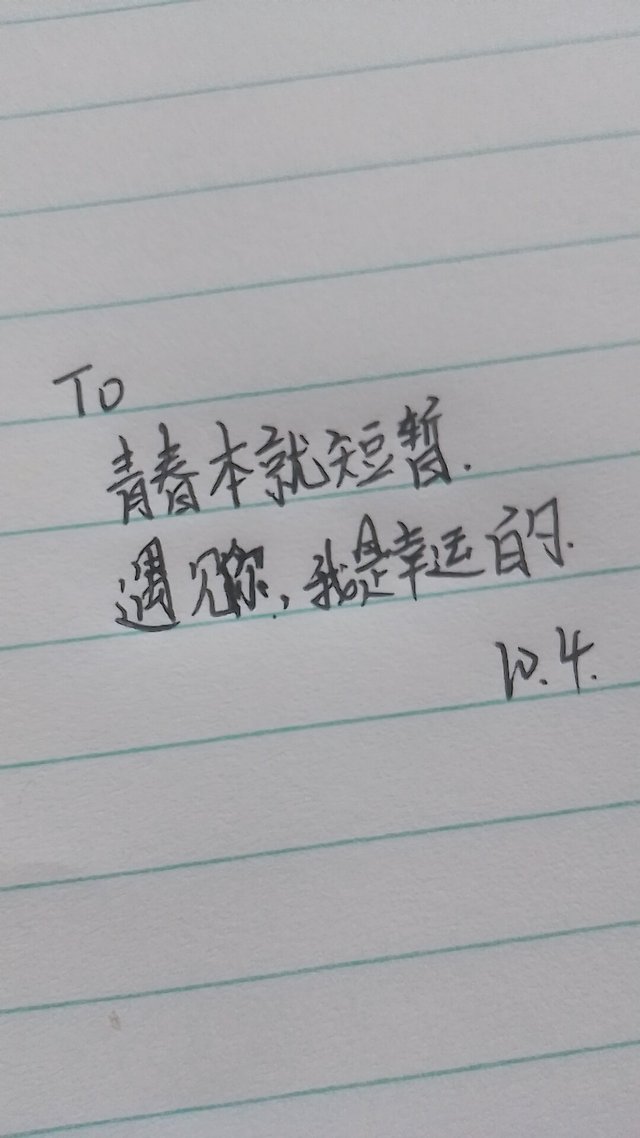 To
青春本就短暂.
遇见你,我是幸运的.
10.4.